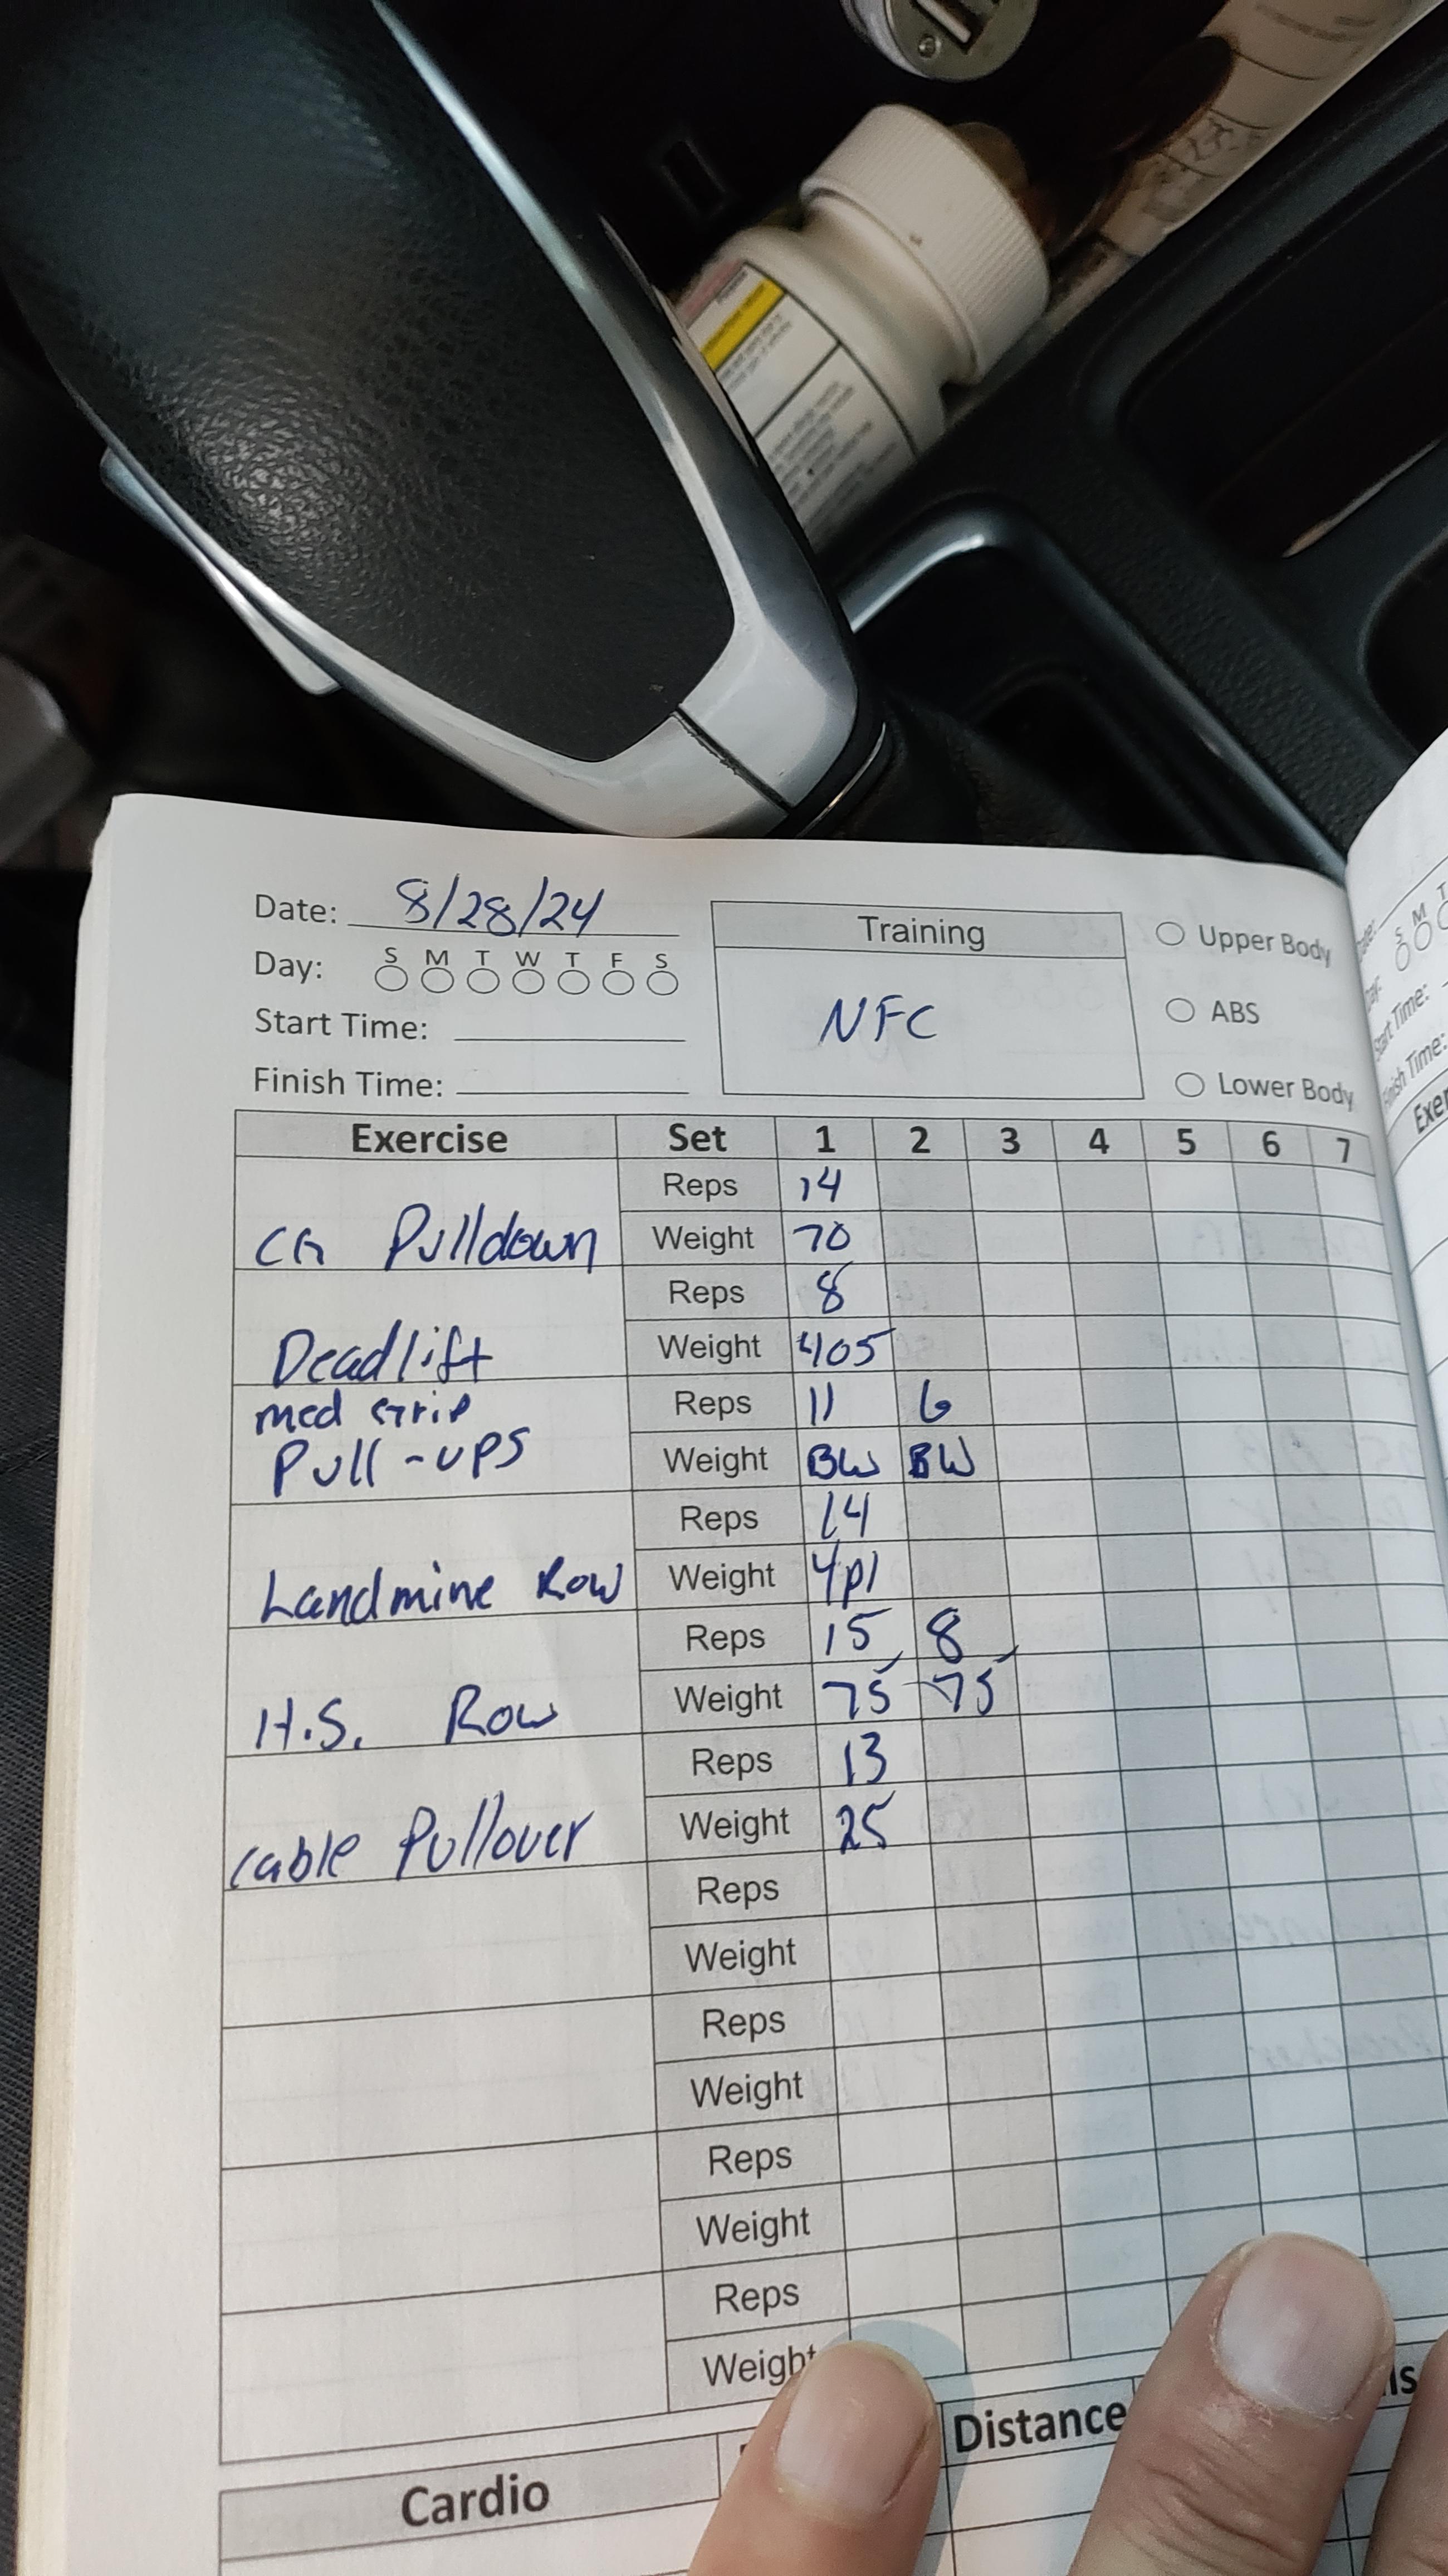 Date: 8/28/24
Day: S M T W T F S
Start Time:
Finish Time:
Training
NFC
Upper Body
ABS
Lower Body
Exercise Set 1 2 3 4 5 6 7
CG Pulldown
Reps 14
Weight 70
Deadlift
Reps 8
Weight 405
med Grip
Pull-ups
Reps 11 6
Weight BW BW
Landmine Row
Reps 14
Weight 4pl
H.S. Row
Reps 15 8
Weight 75 75
Cable Pullover
Reps 13
Weight 25
Reps
Weight
Reps
Weight
Reps
Weight
Reps
Weight
Cardio Distance
S M T
Start Time:
Finish Time: